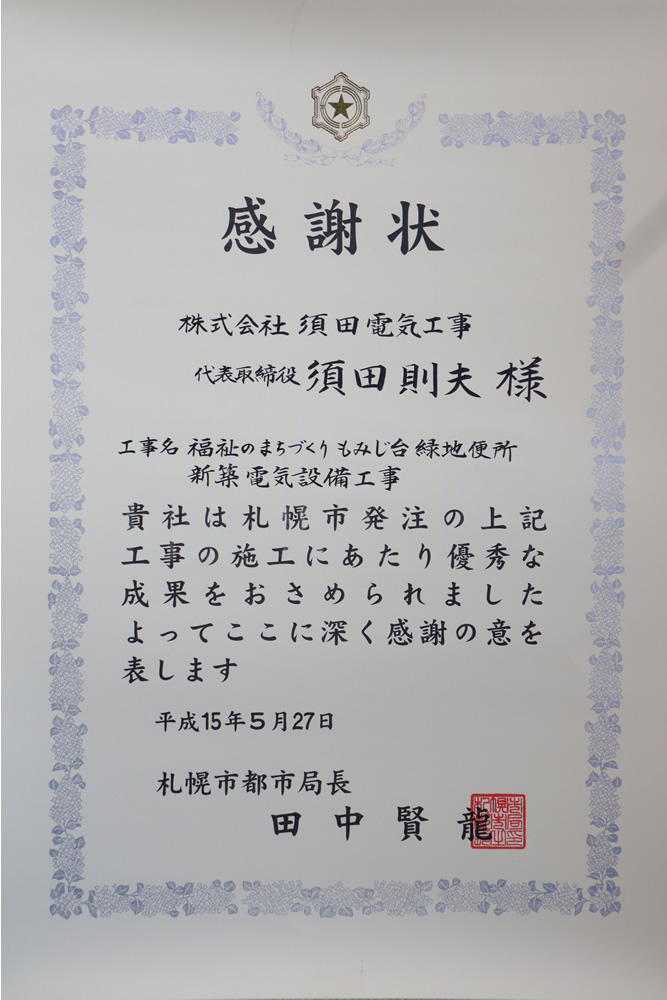 感謝状
株式会社 須田電気工事
代表取締役 須田則夫 様
工事名 福祉のまちづくり もみじ台 緑地便所
新築電気設備工事
貴社は札幌市発注の上記
工事の施工にあたり優秀な
成果をおさめられました
よってここに深く感謝の意を
表します
平成15年5月27日
札幌市都市局長
田中賢龍